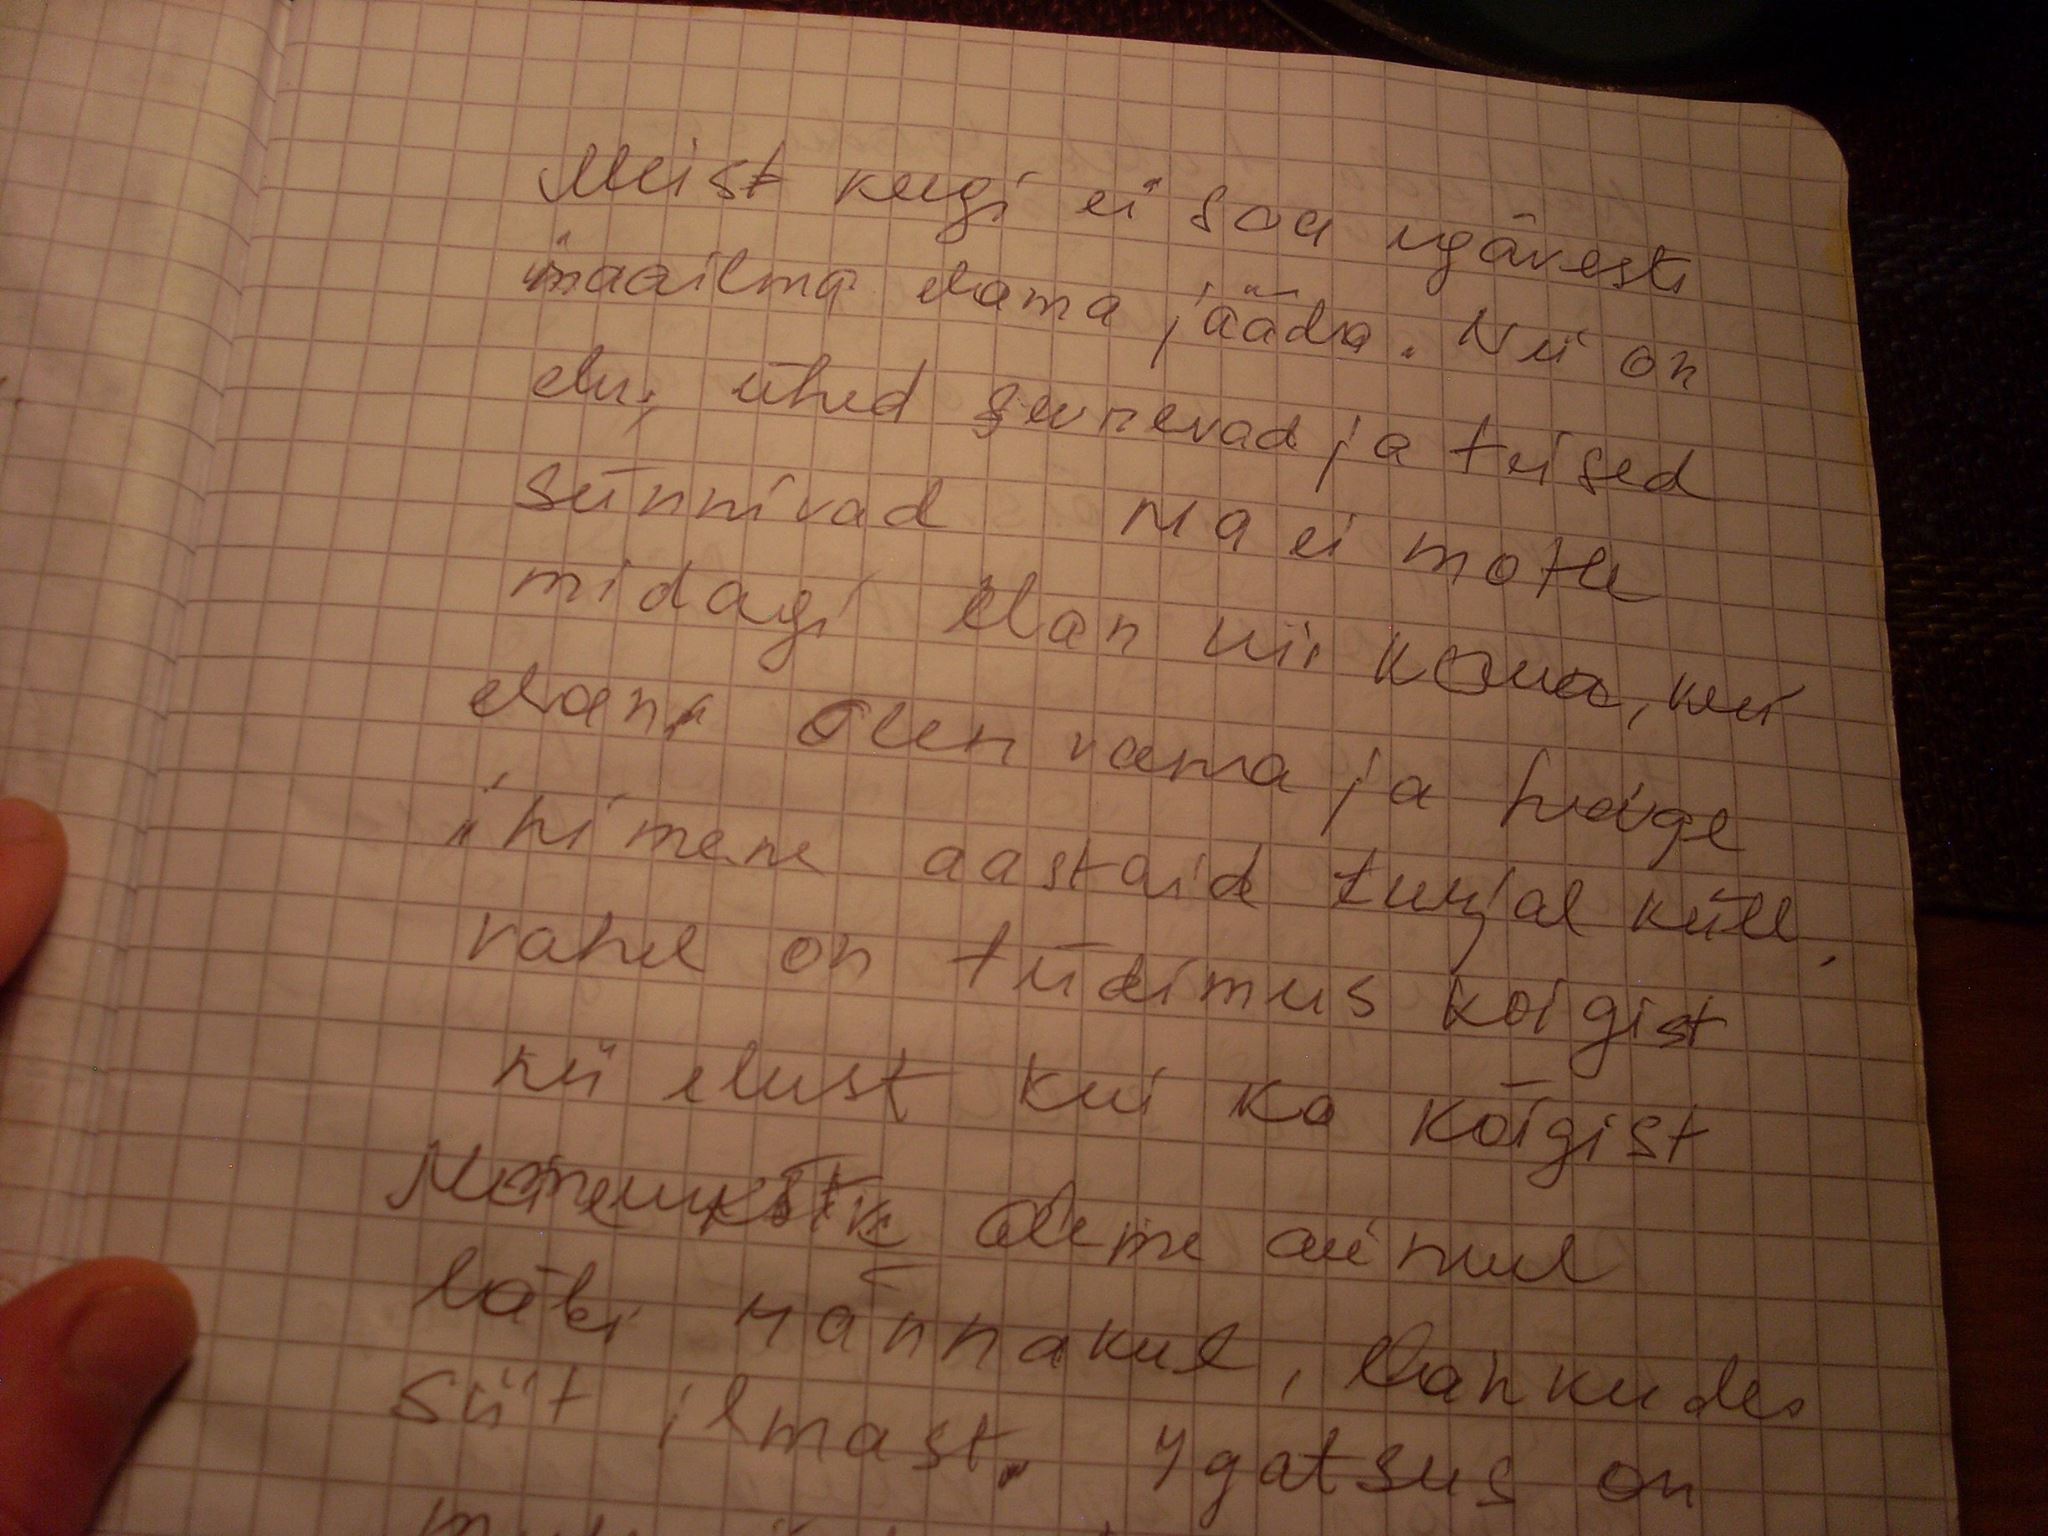 Meist keegi ei saa igavesti
maailma elama jääda. Nii on
elu, ühed surevad ja teised
sünnivad Ma ei mõtle
midagi Elan nii kaua, kui
elan. Olen vana ja haige
inimene aastaid turjal küll,
vahel on tüdimus kõigist
nii elust kui ka kõigist
Oleme ainult
läbi rännakul, lahkudes
siit ilmast. Igatsus on